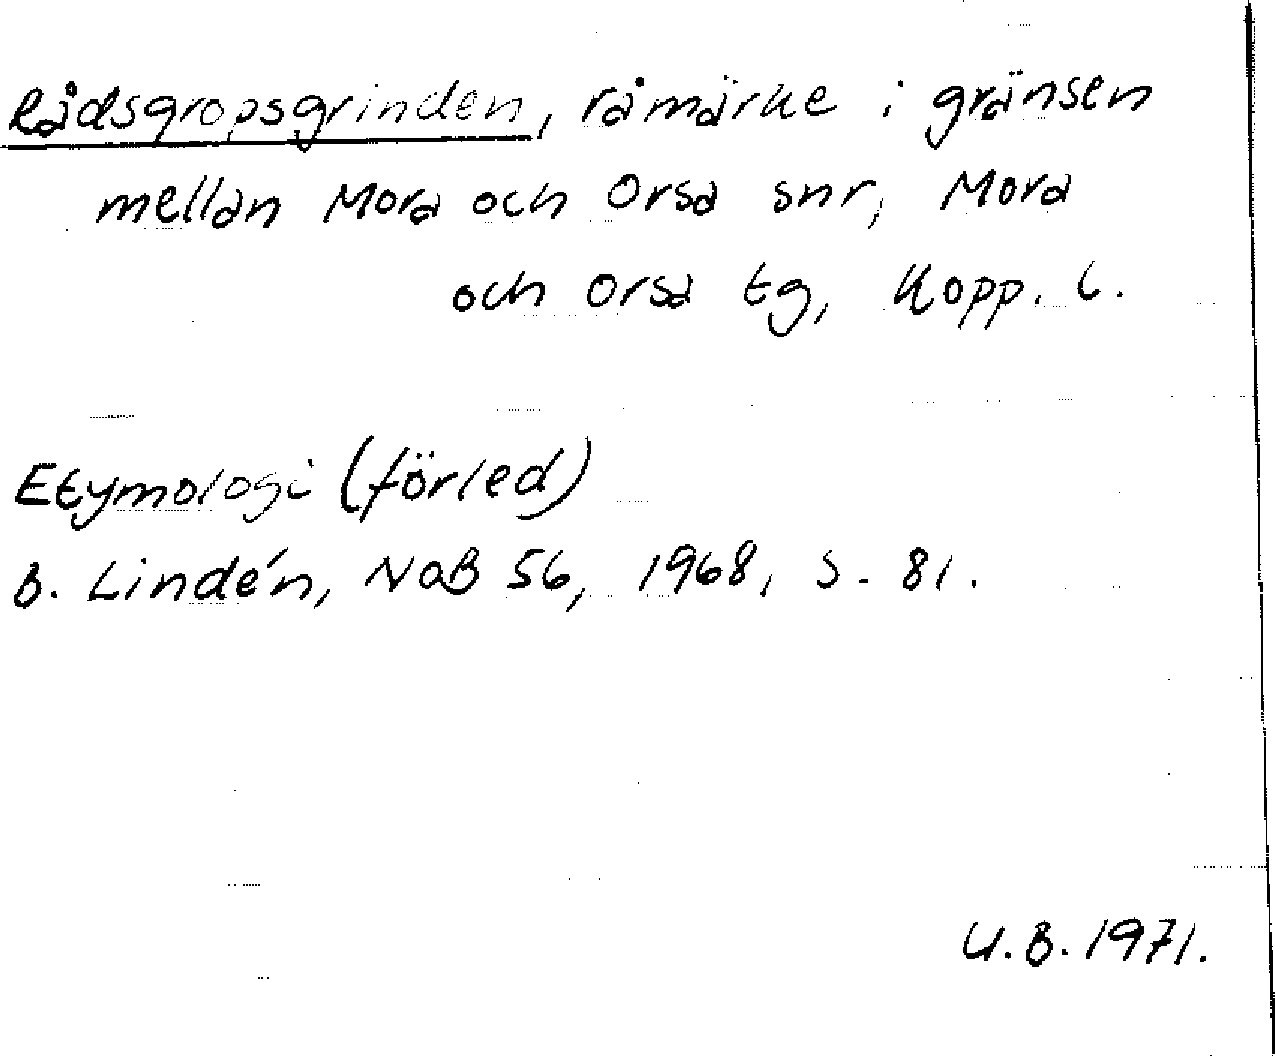 Rådsgropsgrinden, råmärke i gränsen
mellan Mora och Orsa snr, Mora
och Orsa tg, Kopp. l.
Etymologi (förled)
B. Lindén, NoB 56, 1968, s. 81.
U.B. 1971.